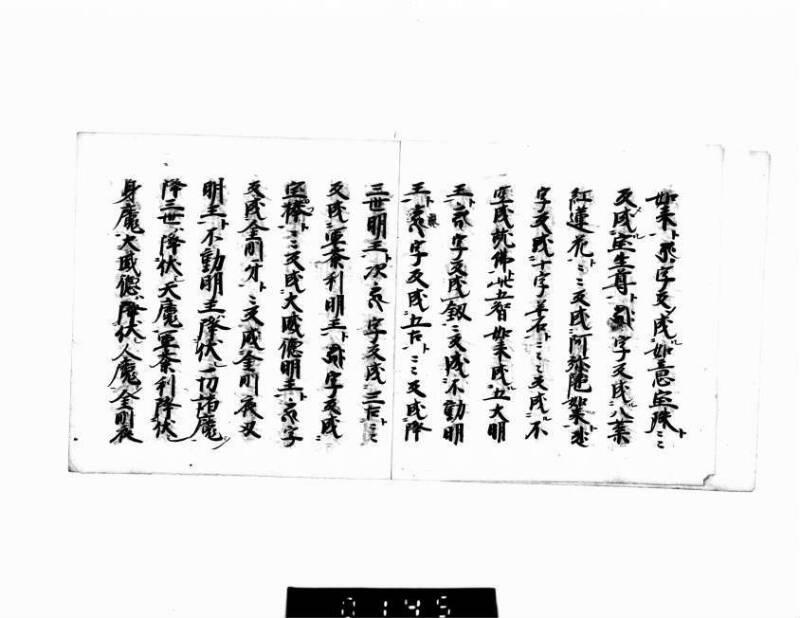 如来ト字変シテ成ル如意宝珠トミミ
変成宝生尊ト字変成八葉
紅蓮花トミミ変成阿弥陀如来
字変成十字羯石トミミ変成不
空成就佛此五智如来成五大明
王ト字変成釼ミ変成不動明
王ト字変成五古トミミ変成降
三世明王次字変成三古トミミ
変成軍荼利明王ト字変成
宝棒トミミ変成大威徳明王ト字
変成金剛牙トミ変成金剛夜叉
明王ト不動明王降伏一切諸魔
降三世降伏天魔軍荼利降伏
身魔大威徳降伏人魔金剛夜
0145